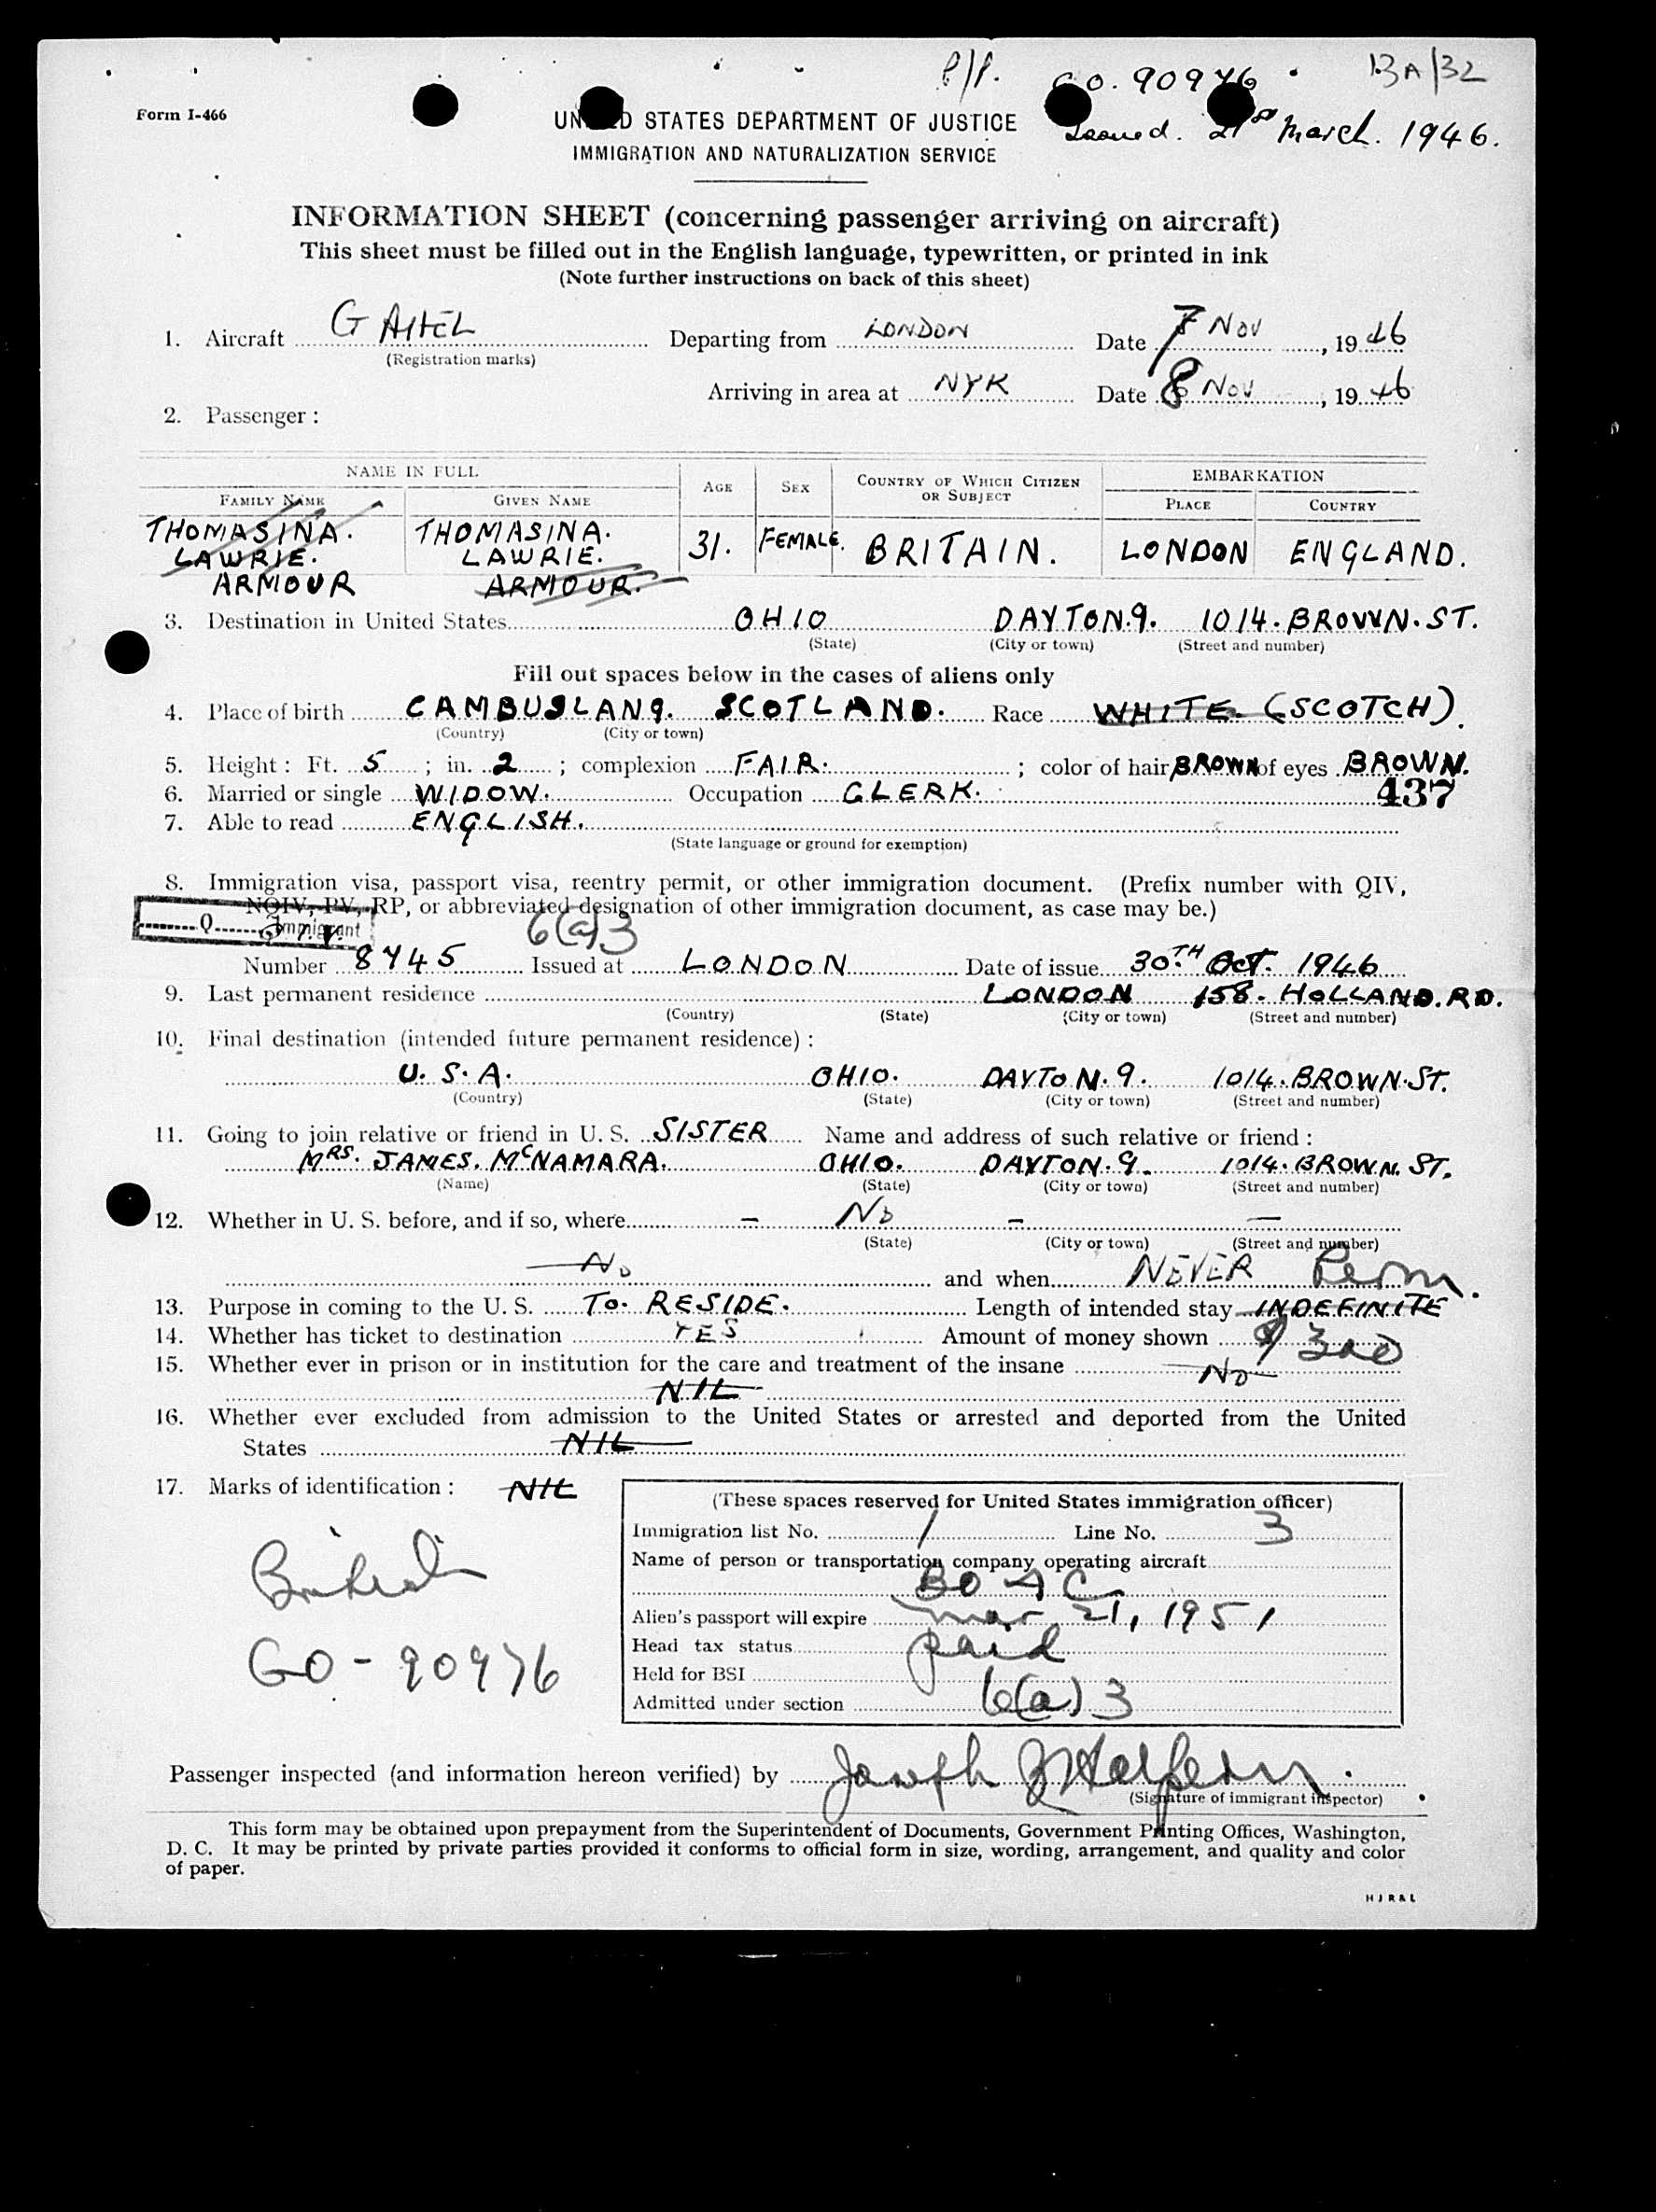 P/P. GO. 90976. BA/32
Form I-466
Issued. 21st March. 1946.
UNITED STATES DEPARTMENT OF JUSTICE
IMMIGRATION AND NATURALIZATION SERVICE
INFORMATION SHEET (concerning passenger arriving on aircraft)
This sheet must be filled out in the English language, typewritten, or printed in ink
(Note further instructions on back of this sheet)
1. Aircraft G AHEL Departing from LONDON Date 7 Nov, 1946
(Registration marks)
Arriving in area at NYK Date 8 Nov, 1946
2. Passenger :
NAME IN FULL AGE SEX COUNTRY OF WHICH CITIZEN OR SUBJECT EMBARKATION
FAMILY NAME GIVEN NAME PLACE COUNTRY
THOMASINA. THOMASINA.
LAWRIE. LAWRIE. 31. FEMALE. BRITAIN. LONDON ENGLAND.
ARMOUR ARMOUR.
3. Destination in United States OHIO DAYTON.9. 1014. BROWN. ST.
(State) (City or town) (Street and number)
Fill out spaces below in the cases of aliens only
4. Place of birth CAMBUSLANG. SCOTLAND. Race WHITE. (SCOTCH).
(Country) (City or town)
5. Height : Ft. 5 ; in. 2 ; complexion FAIR. ; color of hair BROWN of eyes BROWN.
6. Married or single WIDOW. Occupation CLERK. 437
7. Able to read ENGLISH.
(State language or ground for exemption)
8. Immigration visa, passport visa, reentry permit, or other immigration document. (Prefix number with QIV,
NQIV, PV, RP, or abbreviated designation of other immigration document, as case may be.)
Q Immigrant 6(a)3
Number 8745 Issued at LONDON Date of issue 30TH Oct. 1946
9. Last permanent residence LONDON 158. HOLLAND. RD.
(Country) (State) (City or town) (Street and number)
10. Final destination (intended future permanent residence) :
U. S. A. OHIO. DAYTON. 9. 1014. BROWN. ST.
(Country) (State) (City or town) (Street and number)
11. Going to join relative or friend in U. S. SISTER Name and address of such relative or friend :
MRS. JAMES. McNAMARA. OHIO. DAYTON. 9. 1014. BROWN. ST.
(Name) (State) (City or town) (Street and number)
12. Whether in U. S. before, and if so, where – No – –
(State) (City or town) (Street and number)
No and when NEVER Perm.
13. Purpose in coming to the U. S. TO. RESIDE. Length of intended stay INDEFINITE
14. Whether has ticket to destination YES Amount of money shown $ 300
15. Whether ever in prison or in institution for the care and treatment of the insane No
NIL
16. Whether ever excluded from admission to the United States or arrested and deported from the United
States NIL
17. Marks of identification : NIL
(These spaces reserved for United States immigration officer)
Immigration list No. 1 Line No. 3
Name of person or transportation company operating aircraft
BOAC
Alien's passport will expire Mar 21, 1951
Head tax status paid
Held for BSI
Admitted under section 6(a)3
British
GO - 90976
Passenger inspected (and information hereon verified) by Joseph Halpern.
(Signature of immigrant inspector)
This form may be obtained upon prepayment from the Superintendent of Documents, Government Printing Offices, Washington,
D. C. It may be printed by private parties provided it conforms to official form in size, wording, arrangement, and quality and color
of paper.
H J R & L